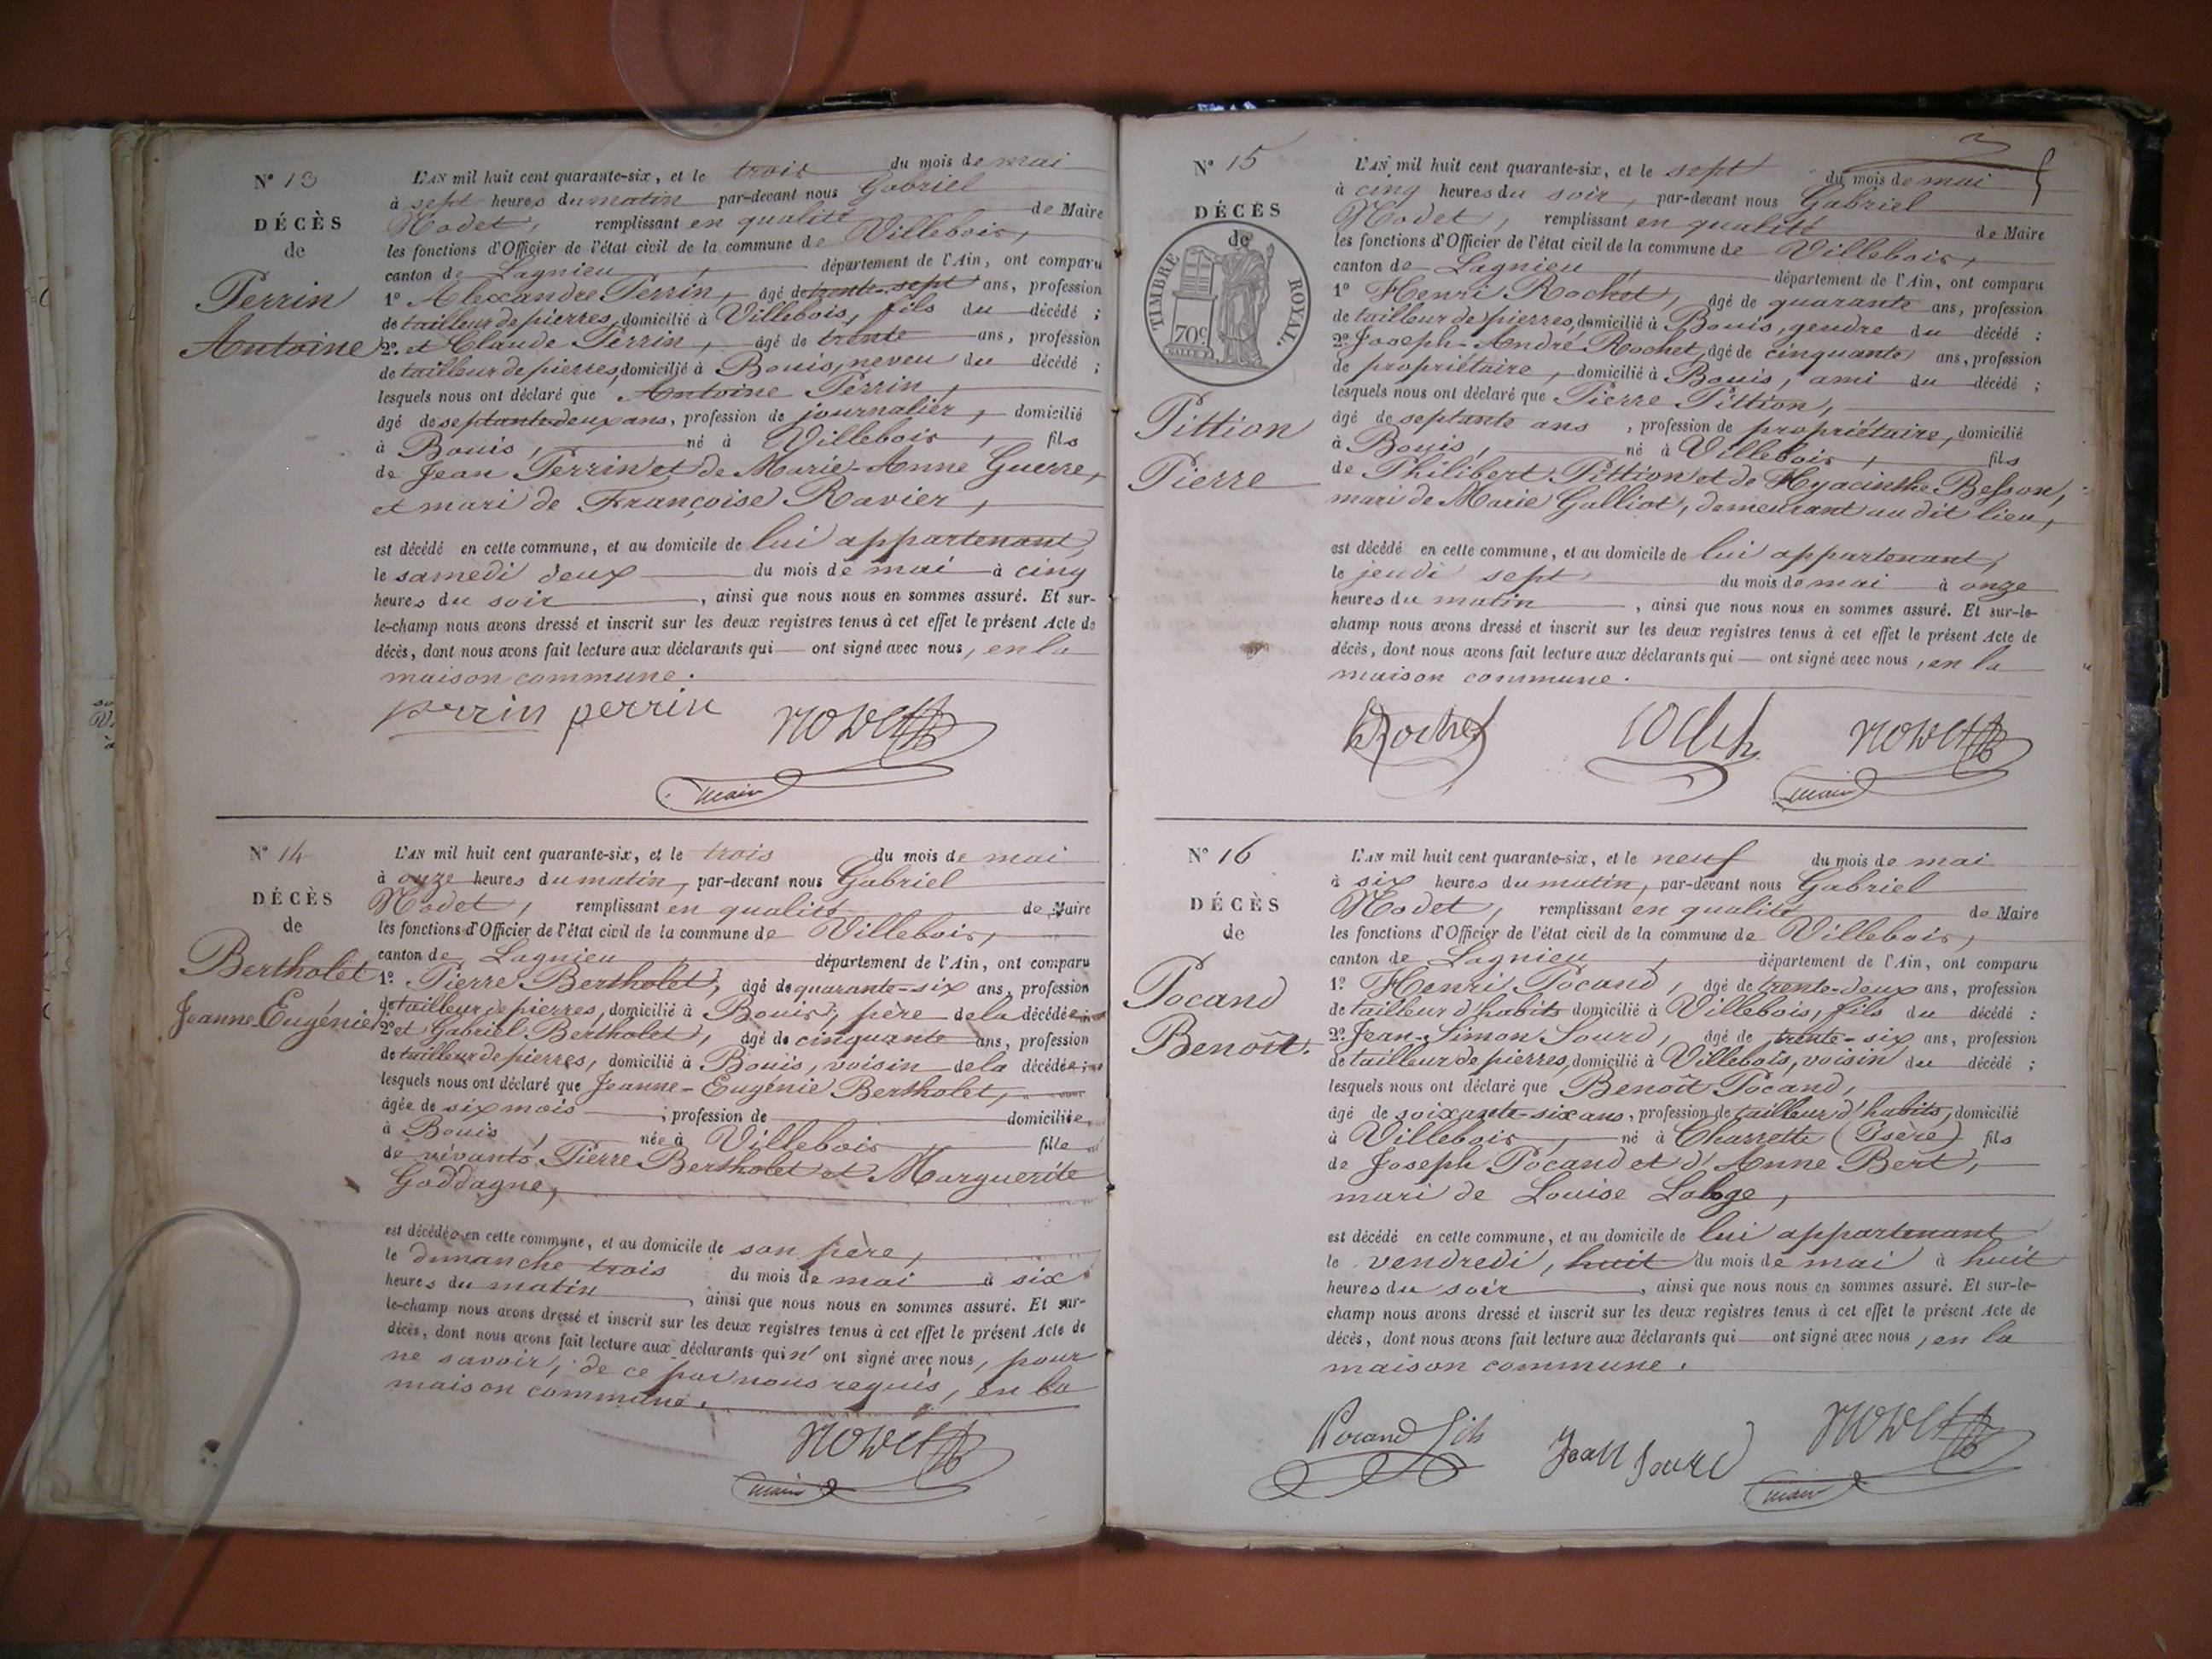 N° 13
DÉCÈS
de
Perrin
Antoine
L'AN mil huit cent quarante-six, et le trois du mois de mai
à sept heures du matin par-devant nous Gabriel
Nodet, remplissant en qualité de Maire
les fonctions d'Officier de l'état civil de la commune de Villebois,
canton de Lagnieu, département de l'Ain, ont comparu
1° Alexandre Perrin, âgé de trente-sept ans, profession
de tailleur de pierres, domicilié à Villebois, fils du décédé ;
2° et Claude Perrin, âgé de trente ans, profession
de tailleur de pierres, domicilié à Bouis, neveu du décédé ;
lesquels nous ont déclaré que Antoine Perrin,
âgé de septante deux ans, profession de journalier, domicilié
à Bouis, né à Villebois, fils
de Jean Perrin et de Marie-Anne Guerre,
et mari de Françoise Ravier,
est décédé en cette commune, et au domicile de lui appartenant,
le samedi deux du mois de mai à cinq
heures du soir, ainsi que nous nous en sommes assuré. Et sur-
le-champ nous avons dressé et inscrit sur les deux registres tenus à cet effet le présent Acte de
décès, dont nous avons fait lecture aux déclarants qui ont signé avec nous, en la
maison commune.
perrin perrin Nodet
maire
N° 14
DÉCÈS
de
Bertholet
Jeanne Eugénie
L'AN mil huit cent quarante-six, et le trois du mois de mai
à onze heures du matin, par-devant nous Gabriel
Nodet, remplissant en qualité de Maire
les fonctions d'Officier de l'état civil de la commune de Villebois,
canton de Lagnieu, département de l'Ain, ont comparu
1° Pierre Bertholet, âgé de quarante-six ans, profession
de tailleur de pierres, domicilié à Bouis, père de la décédée ;
2° et Gabriel Bertholet, âgé de cinquante ans, profession
de tailleur de pierres, domicilié à Bouis, voisin de la décédée ;
lesquels nous ont déclaré que Jeanne-Eugénie Bertholet,
âgée de six mois, profession de domiciliée
à Bouis, née à Villebois fille
de vivants Pierre Bertholet et Marguerite
Goddagne,
est décédée en cette commune, et au domicile de son père,
le dimanche trois du mois de mai à six
heures du matin, ainsi que nous nous en sommes assuré. Et sur-
le-champ nous avons dressé et inscrit sur les deux registres tenus à cet effet le présent Acte de
décès, dont nous avons fait lecture aux déclarants qui n'ont signé avec nous, pour
ne savoir, de ce par nous requis, en la
maison commune.
Nodet
maire
N° 15
DÉCÈS
de
TIMBRE ROYAL.
70c
Pittion
Pierre
L'AN mil huit cent quarante-six, et le sept du mois de mai
à cinq heures du soir, par-devant nous Gabriel
Nodet, remplissant en qualité de Maire
les fonctions d'Officier de l'état civil de la commune de Villebois,
canton de Lagnieu, département de l'Ain, ont comparu
1° Henri Rochet, âgé de quarante ans, profession
de tailleur de pierres, domicilié à Bouis, gendre du décédé ;
2° Joseph-André Rochet, âgé de cinquante ans, profession
de propriétaire, domicilié à Bouis, ami du décédé ;
lesquels nous ont déclaré que Pierre Pittion,
âgé de septante ans, profession de propriétaire, domicilié
à Bouis, né à Villebois, fils
de Philibert Pittion et de Hyacinthe Besson,
mari de Marie Galliot, demeurant au dit lieu,
est décédé en cette commune, et au domicile de lui appartenant,
le jeudi sept du mois de mai à onze
heures du matin, ainsi que nous nous en sommes assuré. Et sur-le-
champ nous avons dressé et inscrit sur les deux registres tenus à cet effet le présent Acte de
décès, dont nous avons fait lecture aux déclarants qui ont signé avec nous, en la
maison commune.
Rochet Nodet
maire
N° 16
DÉCÈS
de
Pocand
Benoît.
L'AN mil huit cent quarante-six, et le neuf du mois de mai
à six heures du matin, par-devant nous Gabriel
Nodet, remplissant en qualité de Maire
les fonctions d'Officier de l'état civil de la commune de Villebois,
canton de Lagnieu, département de l'Ain, ont comparu
1° Henri Pocand, âgé de trente-deux ans, profession
de tailleur d'habits domicilié à Villebois, fils du décédé :
2° Jean-Simon Sourd, âgé de trente-six ans, profession
de tailleur de pierres, domicilié à Villebois, voisin du décédé ;
lesquels nous ont déclaré que Benoît Pocand,
âgé de soixante-six ans, profession de tailleur d'habits, domicilié
à Villebois, né à Charrette (Isère) fils
de Joseph Pocand et d'Anne Bert,
mari de Louise Laloge,
est décédé en cette commune, et au domicile de lui appartenant
le vendredi, huit du mois de mai à huit
heures du soir, ainsi que nous nous en sommes assuré. Et sur-le-
champ nous avons dressé et inscrit sur les deux registres tenus à cet effet le présent Acte de
décès, dont nous avons fait lecture aux déclarants qui ont signé avec nous, en la
maison commune.
Pocand fils Jean Sourd Nodet
maire